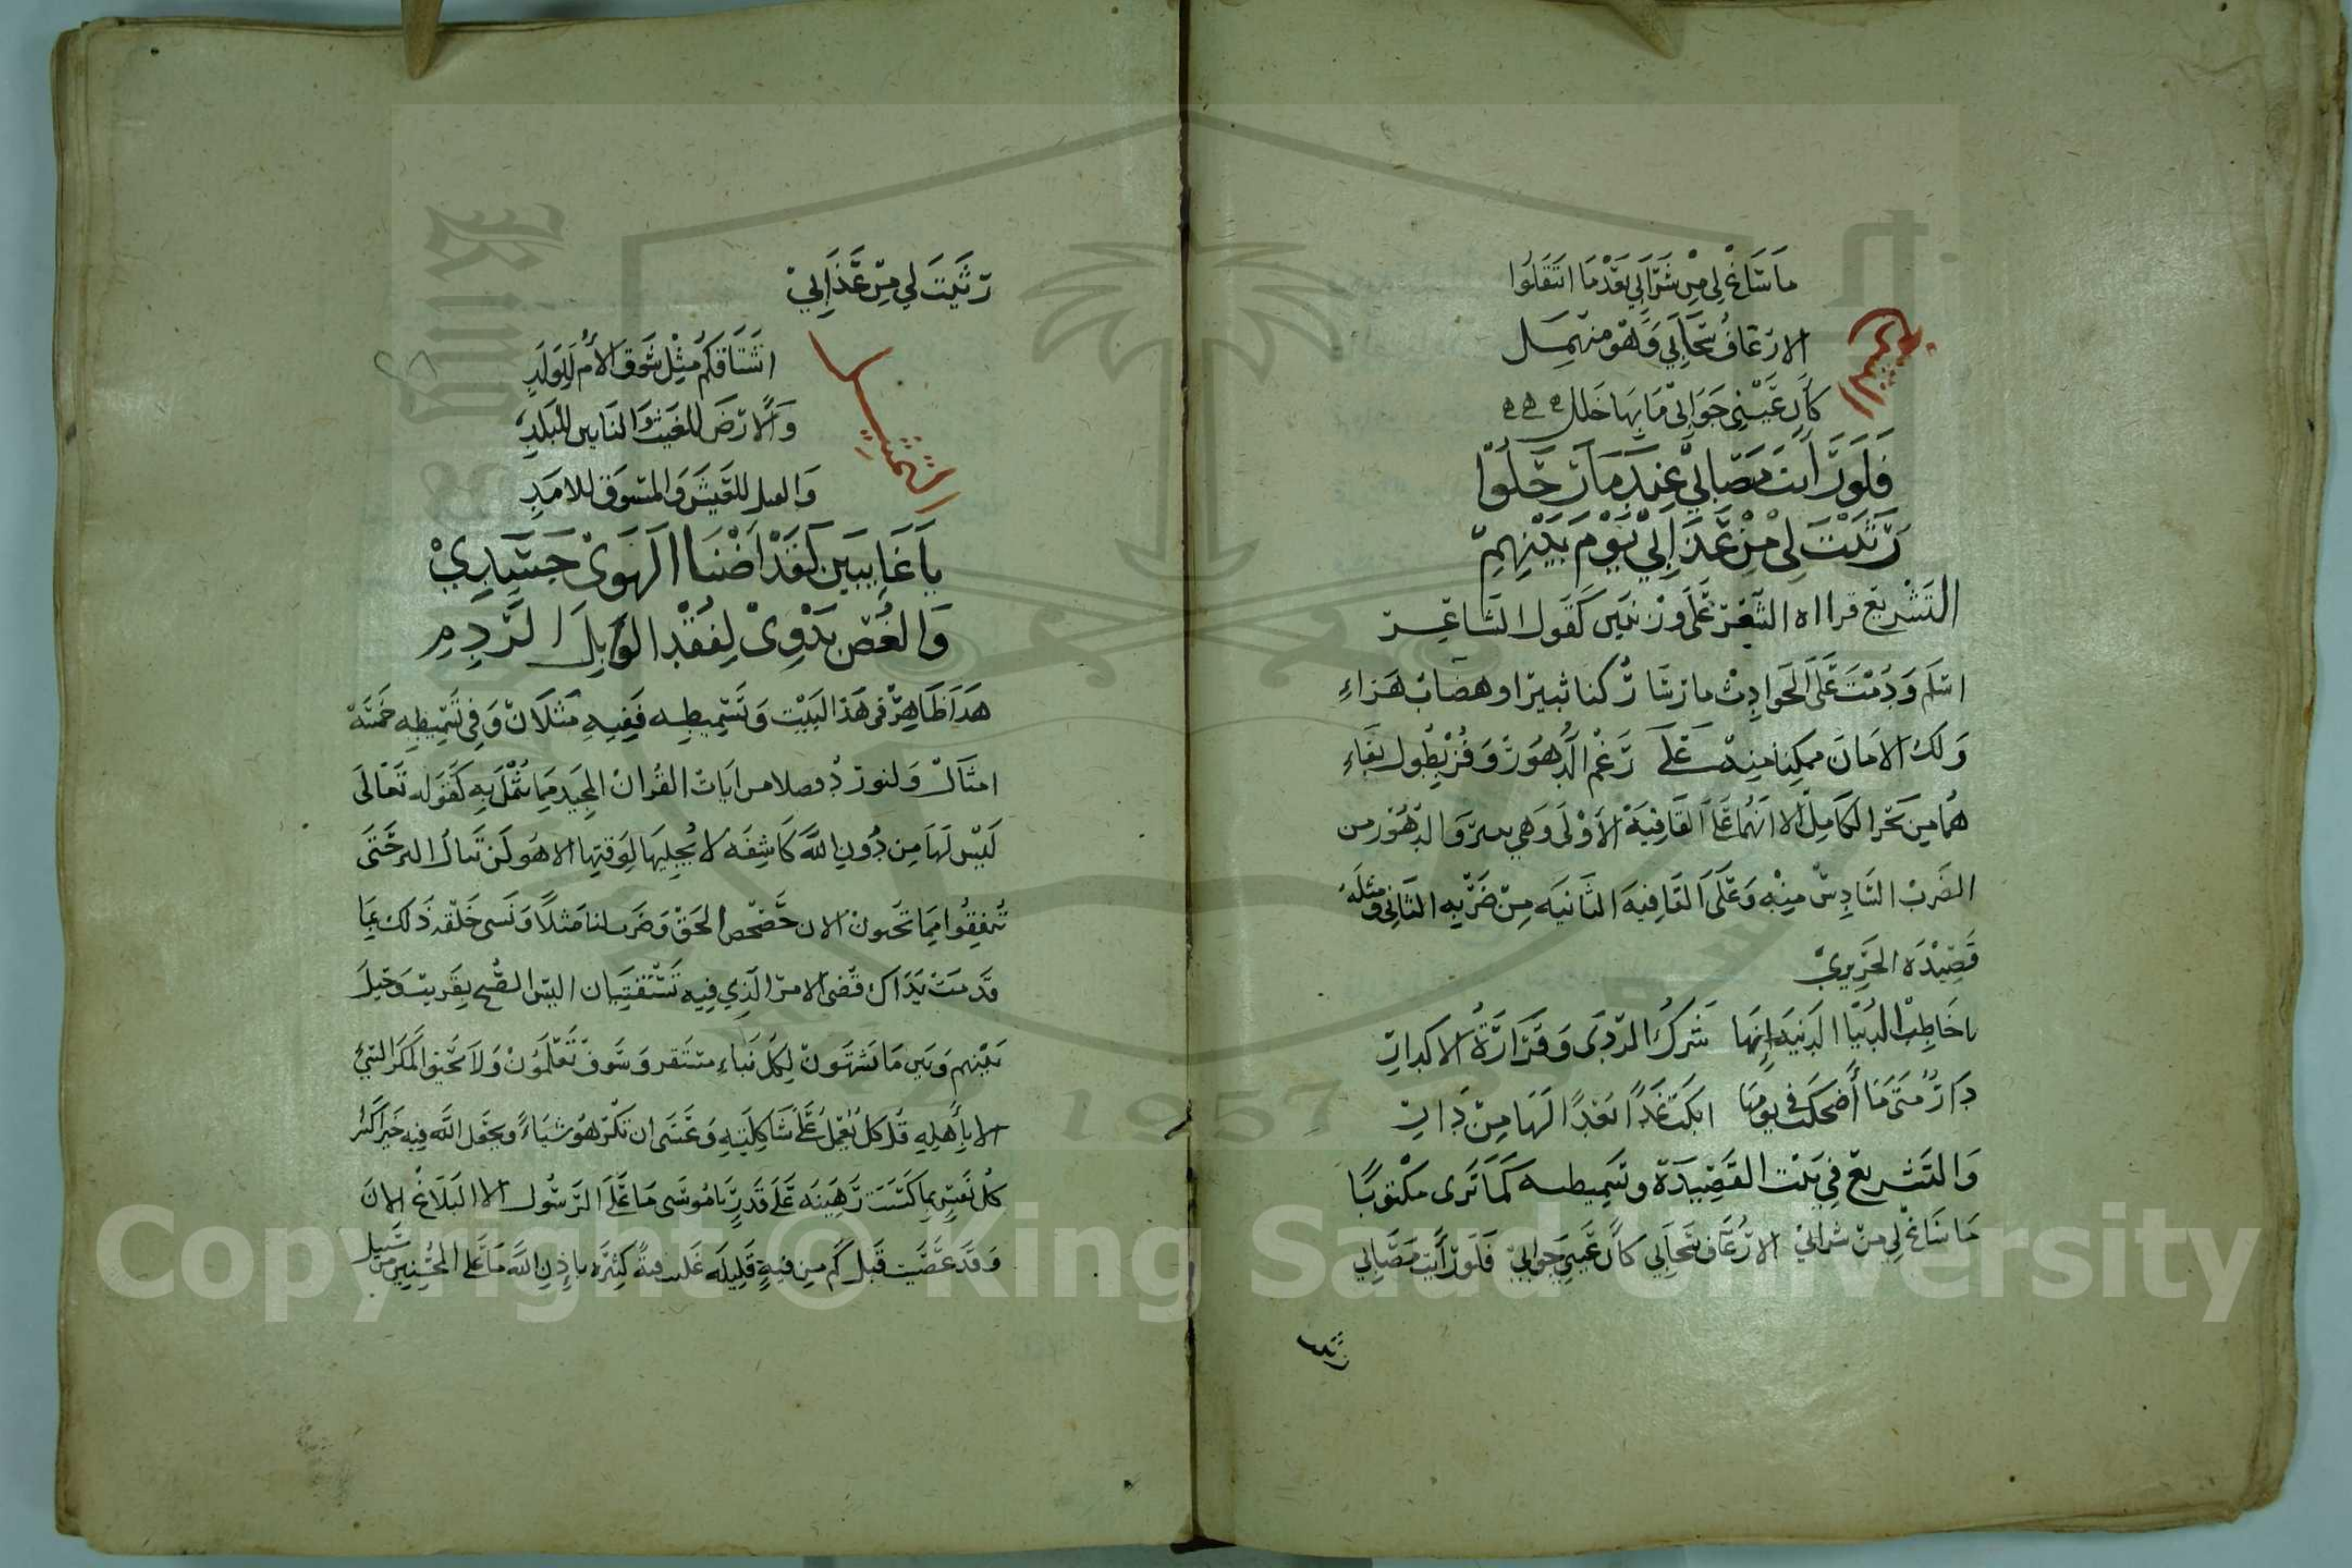 ما ساغ لي من شرابي بعد ما انتقلوا
الا زعاف سحابي وهو منهمل
كأن عيني جوابي ما بها خلل
التشريع
فلو رأيت مصابي عند ما رحلوا
رثيت لي من عذابي يوم بينهم
التشريع قراءة الشعر على وزنين كقول الشاعر
اسلم ودمت على الحوادث ما رسا ركنا ثبير او هضاب حراء
ولك الامان ممكنا منه على رغم الدهور وفز بطول بقاء
هما من بحر الكامل الا انهما على القافية الاولى وهي والدهور من
الضرب السادس منه وعلى القافيه الثانيه من ضربه الثاني ومثله
قصيدة الحريري
يا خاطب الدنيا الدنيه إنها شرك الردى وقرارة الاكدار
دار متى ما أضحكت في يومها ابكت غدا بعدا لها من دار
والتشريع في بيت القصيدة وتسميطه كما ترى مكتوبا
ما ساغ لي من شرابي الا زعاف سحابي كأن عيني جوابي فلو رأيت مصابي
رثيت
رثيت لي من عذابي
اشتاقكم مثل شوق الأم للولد
والارض للغيث والنايين للبلد
التمثيل
للعيش والمسوق للامد
يا غايبين لقد اضنا الهوى جسدي
والغصن يذوي لفقد الوابل الرذم
هذا ظاهر في هذا البيت وتسميطه ففيه مثلان وفي تسميطه خمسة
امثال ولنورد فصلا من ايات القران المجيد مما تمثل به كقوله تعالى
ليس لها من دون الله كاشفه لا يجليها لوقتها الا هو لن تنالوا البر حتى
تنفقوا مما تحبون الان حصحص الحق وضرب لنا مثلا ونسى خلقه ذلك بما
قدمت يداك قضى الامر الذي فيه تستفتيان اليس الصبح بقريب وحيل
بينهم وبين ما يشتهون لكل نباء مستقر وسوف تعلمون ولا يحيق المكر السيء
الا بأهله قل كل يعمل على شاكلته وعسى ان تكرهو شياء ويجعل الله فيه خيرا كثيرا
كل نفس بما كسبت رهينه على قدر يا موسى ما على الرسول الا البلاغ الان
وقد عصيت قبل كم من فئة قليله غلبت فئة كثيره باذن الله ما على المحسنين من سبيل
Copyright © King Saud University
1957